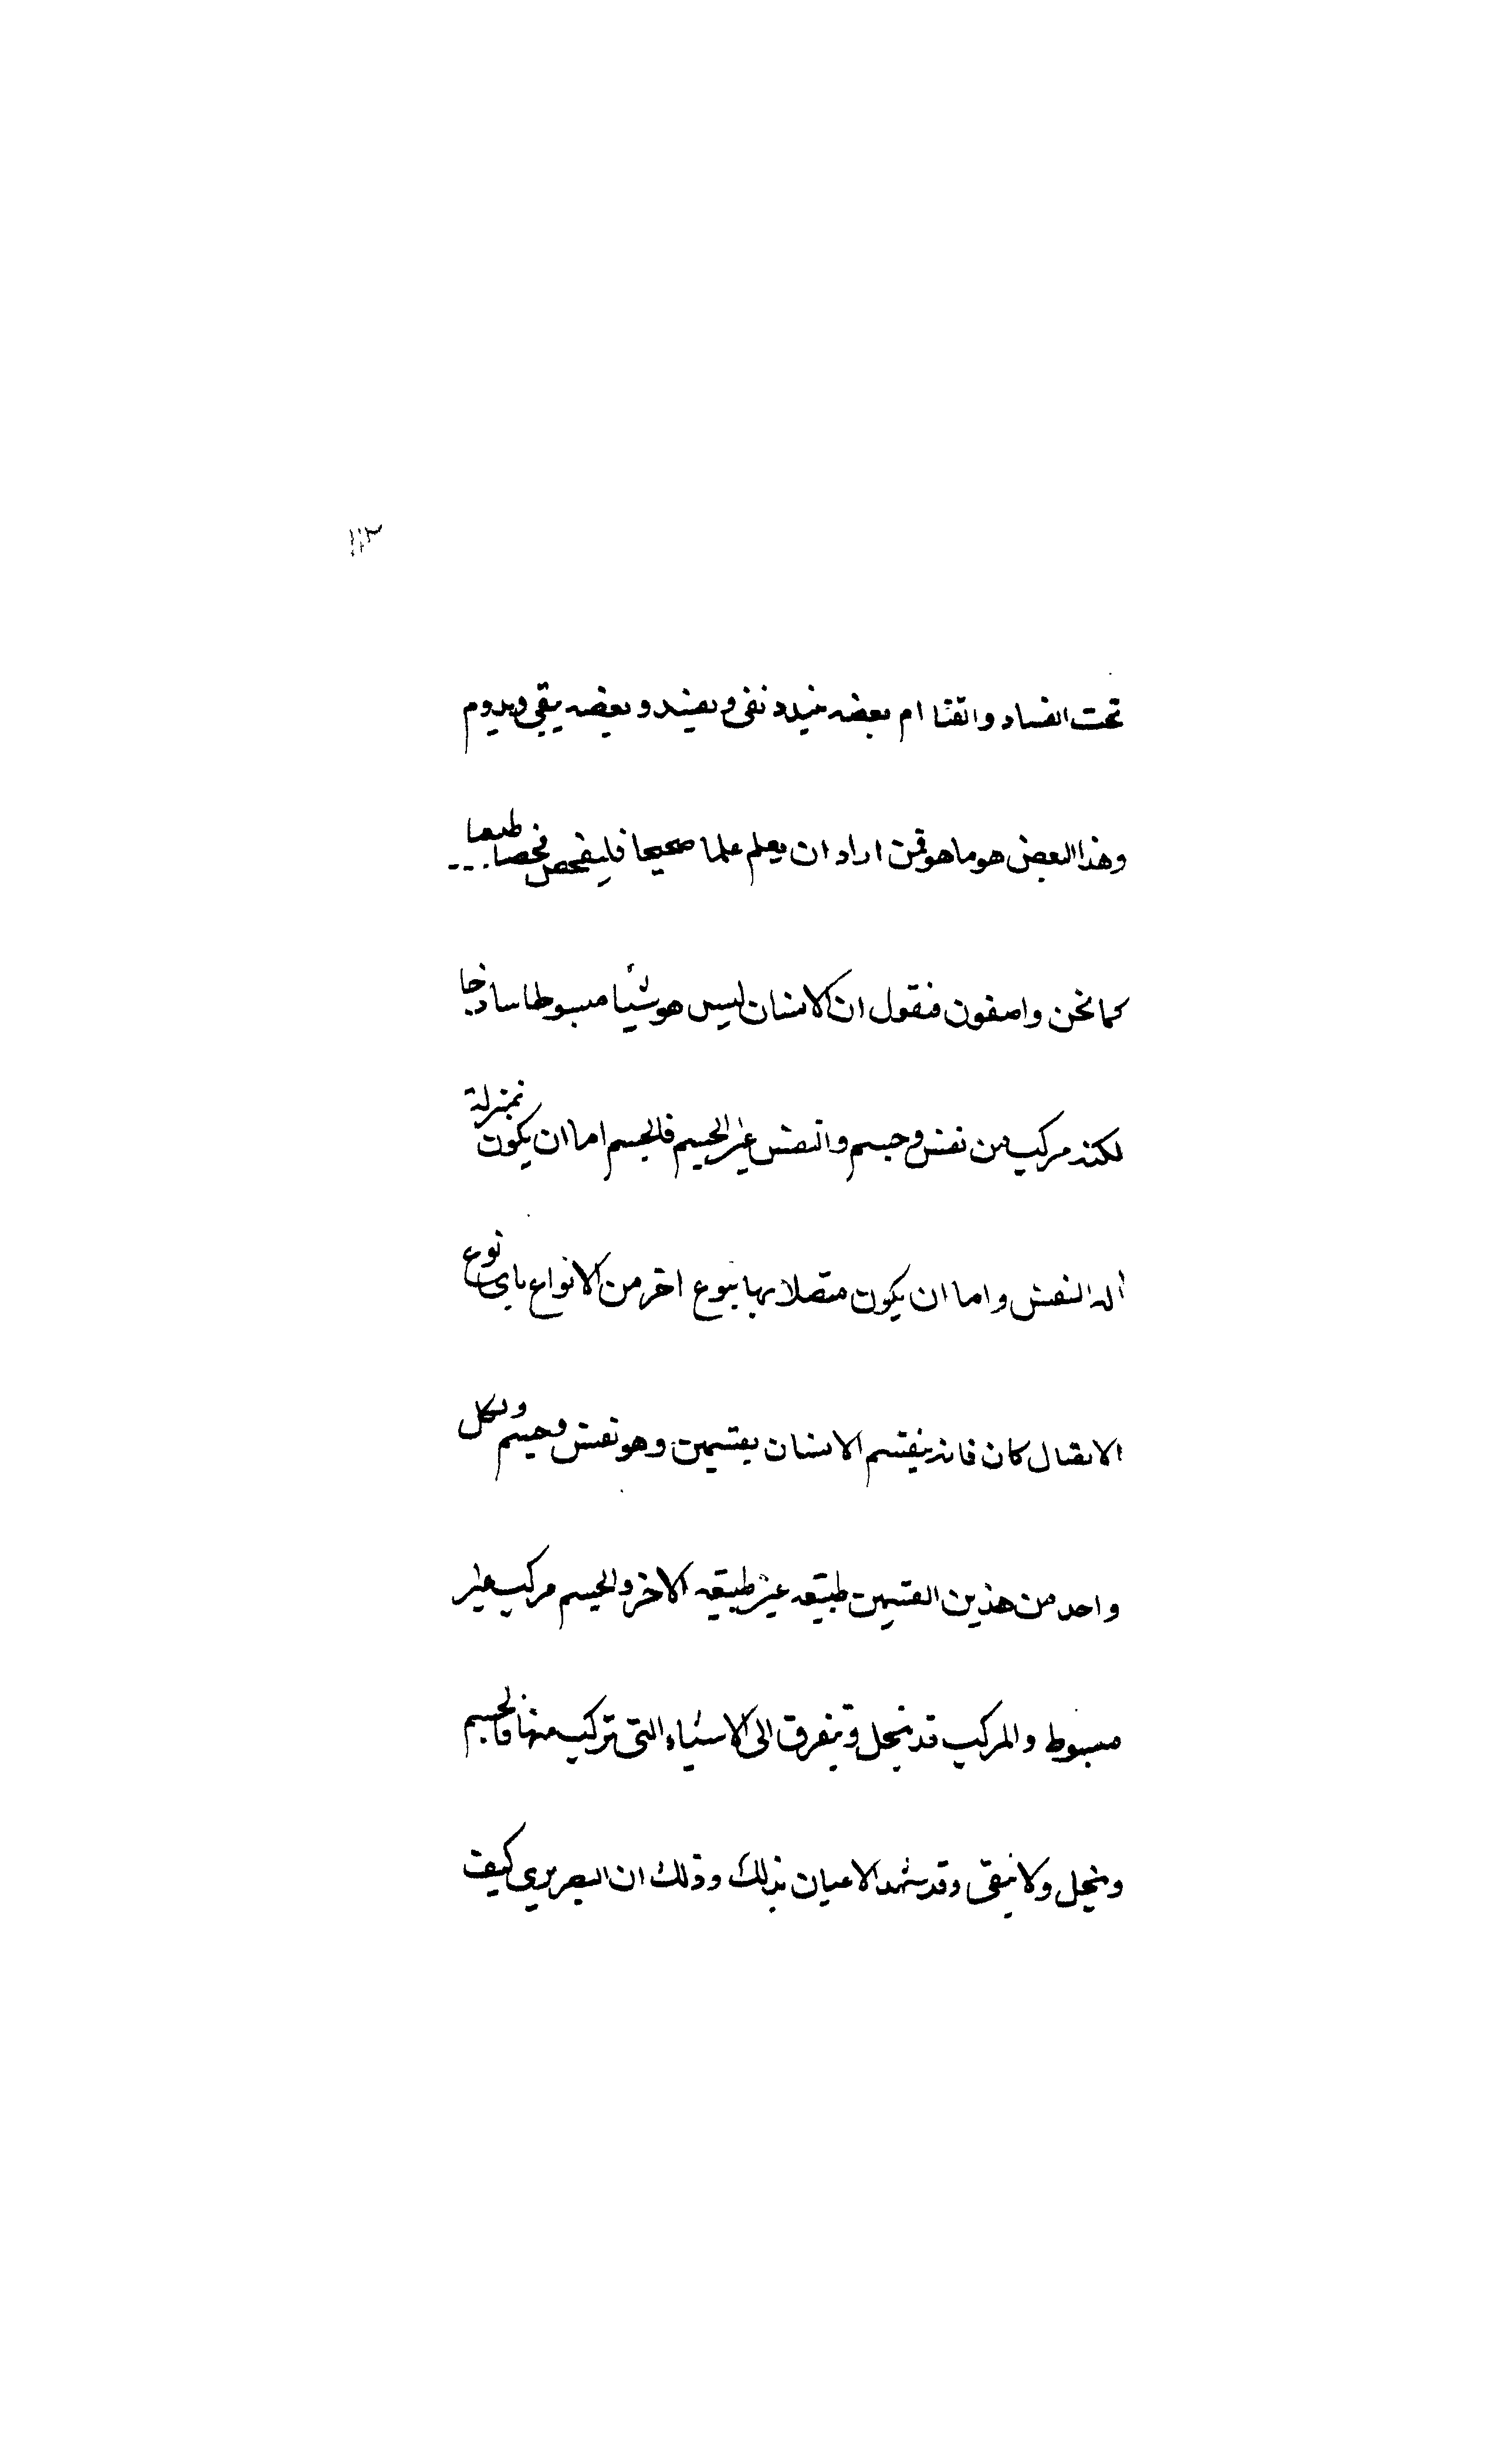 ١١٣
تحت الفساد والفنا ام بعضه يبيد ويفنى ويفسد وبعضه يبقى ويدوم
وهذا البعض هو ما هو فمن اراد ان يعلم علما صحيحا فليفحص فحصا طبيعيا
كما نحن واصفون فنقول ان الانسان ليس هو شيا مبسوطا ساذجا
لكنه مركب من نفس وجسم والنفس غير الجسم فالجسم اما ان يكون بمنزلة
اله النفس واما ان يكون متصلا بها بنوع اخر من الانواع باى نوع
الاتصال كان فانه ينقسم الانسان بقسمين وهو نفس وجسم ولكل
واحد من هذين القسمين طبيعه غير طبيعه الاخر والجسم مركب غير
مبسوط والمركب قد ينحل ويتفرق الى الاشياء التى تركب منها فالجسم
وينحل ولا يبقى وقد يشهد الاعيان بذلك وذلك ان البصر يرى كيف